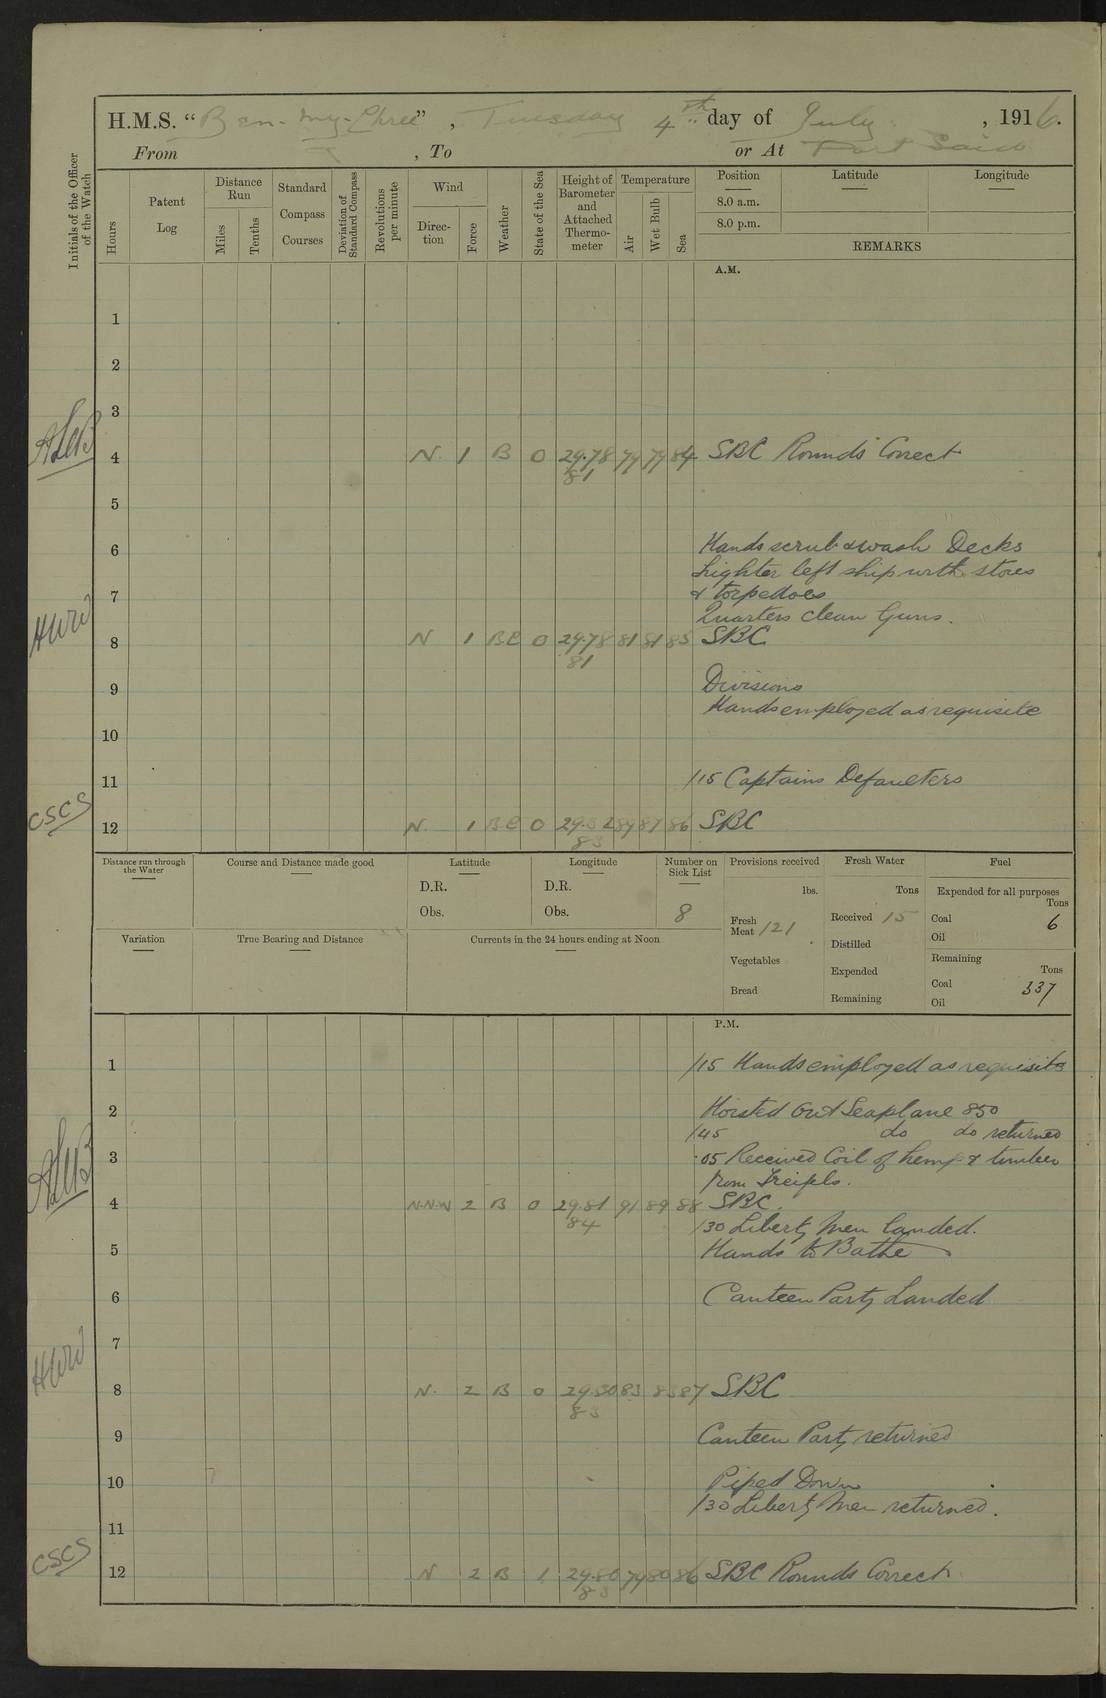 H.M.S. "Ben-my-Chree", Tuesday 4th day of July, 1916.
From , To or At Port Said
Initials of the Officer of the Watch
Hours
Patent Log
Distance Run
Miles
Tenths
Standard Compass Courses
Deviation of Standard Compass
Revolutions per minute
Wind
Direction
Force
Weather
State of the Sea
Height of Barometer and Attached Thermometer
Temperature
Air
Wet Bulb
Sea
Position Latitude Longitude
8.0 a.m.
8.0 p.m.
REMARKS
A.M.
1
2
3
4 N 1 B 0 29.78 84 SBC Rounds Correct
81
5
6 Hands scrub & wash Decks
Lighter left ship with stores
7 & torpedoes
Quarters clean Guns.
HWW
8 N 1 BC 0 29.78 81 81 85 SBC
81
9 Divisions
Hands employed as requisite
10
11 /15 Captains Defaulters
CSCS
12 N 1 BC 0 87 86 SBC
83
Distance run through the Water
Course and Distance made good
Latitude
D.R.
Obs.
Longitude
D.R.
Obs.
Number on Sick List
8
Provisions received
lbs.
Fresh Meat 121
Vegetables
Bread
Fresh Water
Tons
Received 15
Distilled
Expended
Remaining
Fuel
Expended for all purposes
Tons
Coal 6
Oil
Remaining
Tons
Coal 337
Oil
Variation
True Bearing and Distance
Currents in the 24 hours ending at Noon
P.M.
1 /15 Hands employed as requisite
2 Hoisted Out Seaplane 850
/45 do do returned
3 .05 Received Coil of hemp & timber
from
4 N-N-W 2 B 0 29.81 91 89 88 SBC.
84
/30 Liberty Men landed.
5 Hands to Bathe
6 Canteen Party Landed
7
HWW
8 N. 2 B 0 29.80 83 83 87 SBC
83
9 Canteen Party returned
10 Piped Down
/30 Liberty Men returned.
11
CSCS
12 N 2 B 1 29.80 79 80 86 SBC Rounds Correct
83